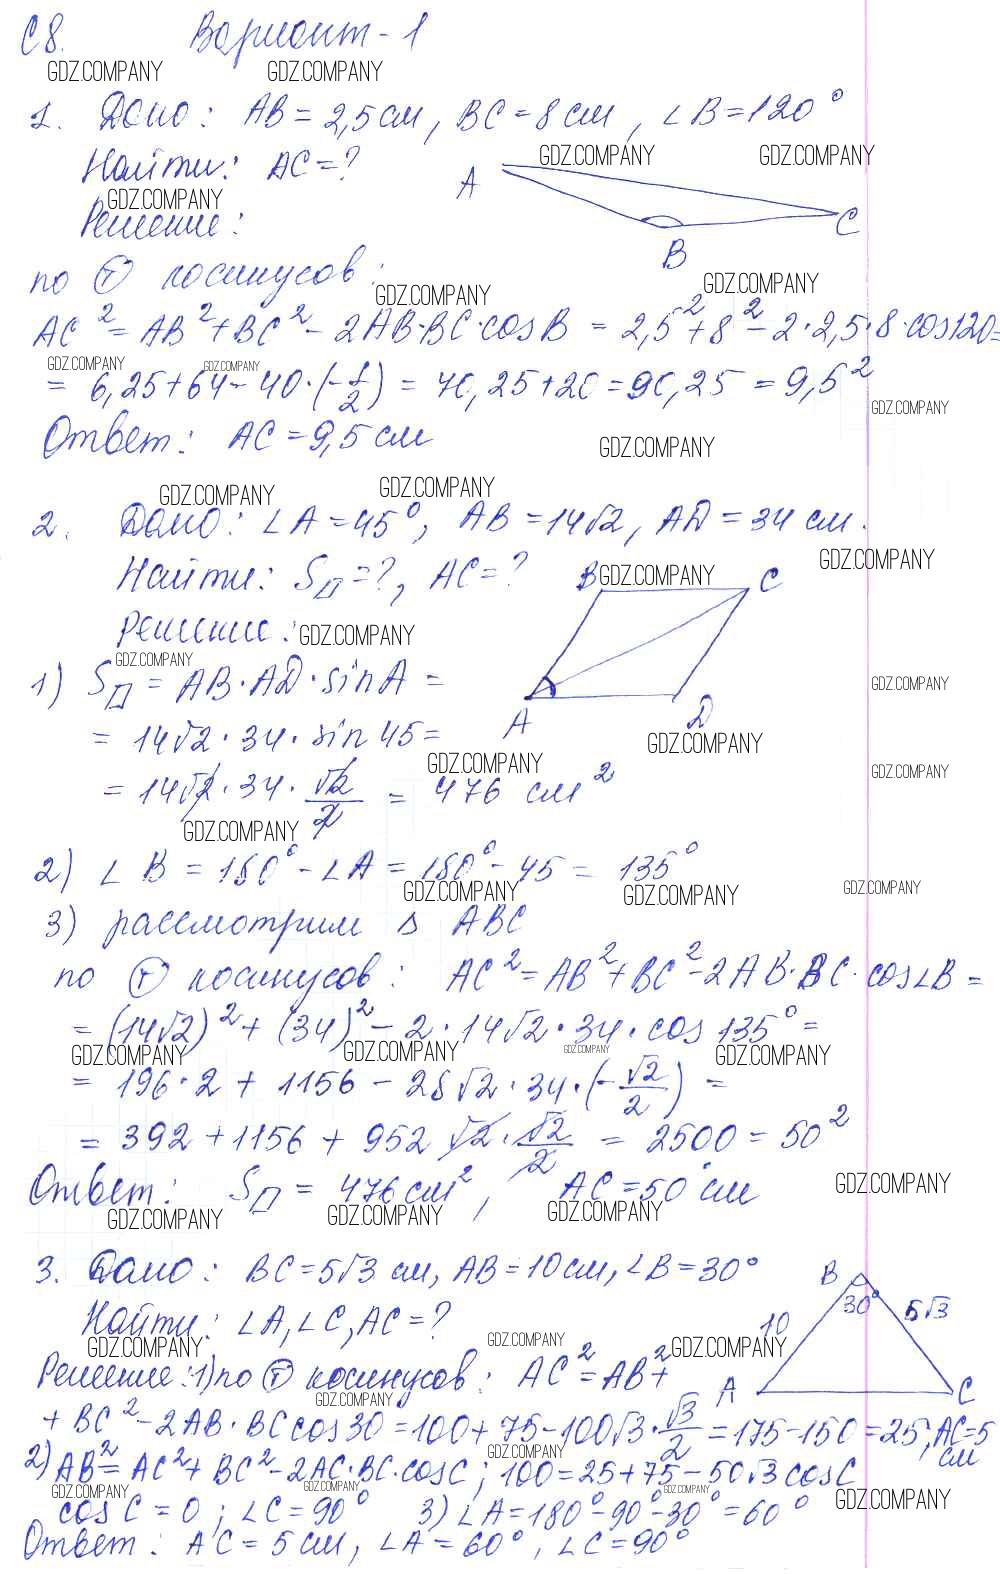 С8. Вариант-1
GDZ.COMPANY GDZ.COMPANY
1. Дано: AB = 2,5 см, BC = 8 см, ∠B = 120°
GDZ.COMPANY GDZ.COMPANY
Найти: AC = ?
A
GDZ.COMPANY
Решение:
C
B
по Ⓣ косинусов:
GDZ.COMPANY GDZ.COMPANY
AC² = AB² + BC² - 2AB·BC·cosB = 2,5² + 8² - 2·2,5·8·cos120=
GDZ.COMPANY GDZ.COMPANY
= 6,25 + 64 - 40·(-1/2) = 70,25 + 20 = 90,25 = 9,5²
GDZ.COMPANY
Ответ: AC = 9,5 см
GDZ.COMPANY
GDZ.COMPANY GDZ.COMPANY
2. Дано: ∠A = 45°, AB = 14√2, AD = 34 см.
GDZ.COMPANY
Найти: S▱ = ?, AC = ?
B GDZ.COMPANY C
Решение: GDZ.COMPANY
GDZ.COMPANY
1) S▱ = AB·AD·sinA =
GDZ.COMPANY
A D
= 14√2·34·sin45=
GDZ.COMPANY
GDZ.COMPANY GDZ.COMPANY
= 14√2·34·√2/2 = 476 см²
GDZ.COMPANY
2) ∠B = 180° - ∠A = 180° - 45 = 135°
GDZ.COMPANY GDZ.COMPANY GDZ.COMPANY
3) рассмотрим △ ABC
по Ⓣ косинусов: AC² = AB² + BC² - 2AB·BC·cos∠B =
= (14√2)² + (34)² - 2·14√2·34·cos135° =
GDZ.COMPANY GDZ.COMPANY GDZ.COMPANY GDZ.COMPANY
= 196·2 + 1156 - 28√2·34·(-√2/2) =
= 392 + 1156 + 952√2·√2/2 = 2500 = 50²
Ответ: S▱ = 476 см², AC = 50 см
GDZ.COMPANY
GDZ.COMPANY GDZ.COMPANY GDZ.COMPANY
3. Дано: BC = 5√3 см, AB = 10 см, ∠B = 30°
B
30°
5√3
10
Найти: ∠A, ∠C, AC = ?
GDZ.COMPANY GDZ.COMPANY GDZ.COMPANY
Решение: 1) по Ⓣ косинусов: AC² = AB² +
A C
GDZ.COMPANY
+ BC² - 2AB·BCcos30 = 100 + 75 - 100√3·√3/2 = 175 - 150 = 25; AC = 5 см
GDZ.COMPANY
2) AB² = AC² + BC² - 2AC·BC·cosC; 100 = 25 + 75 - 50√3cosC
GDZ.COMPANY GDZ.COMPANY GDZ.COMPANY GDZ.COMPANY
cosC = 0; ∠C = 90° 3) ∠A = 180° - 90° - 30° = 60°
Ответ: AC = 5 см, ∠A = 60°, ∠C = 90°